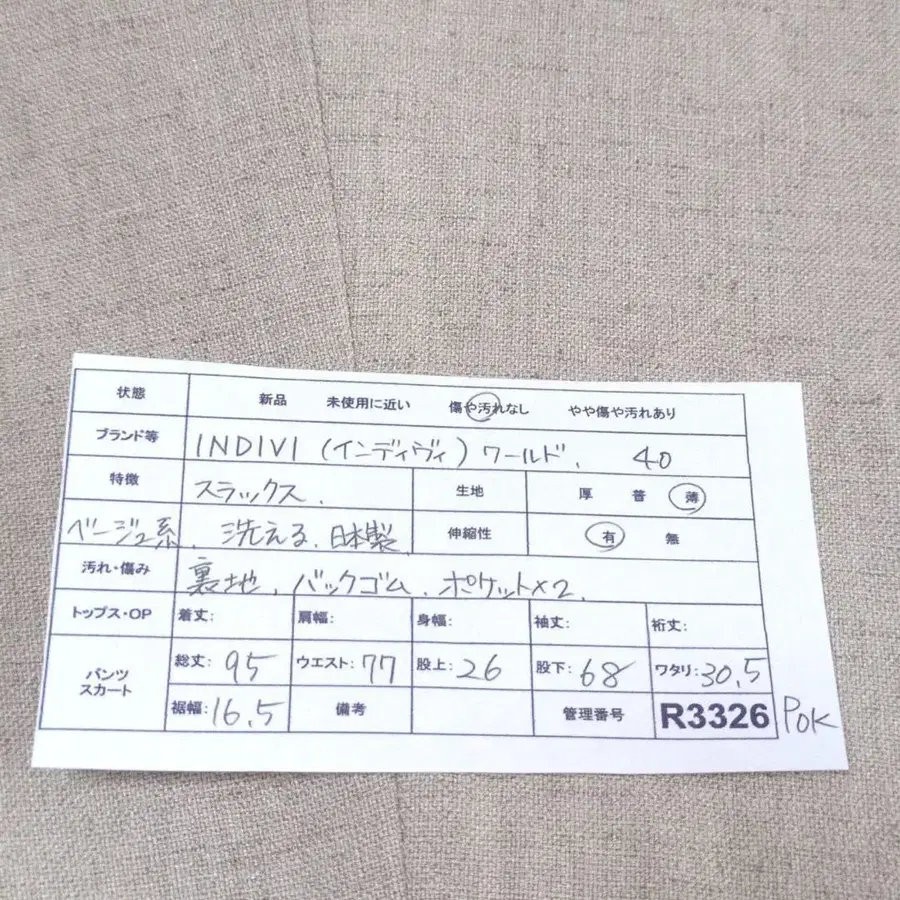 状態 新品 未使用に近い 傷や汚れなし やや傷や汚れあり
ブランド等 INDIVI (インディヴィ) ワールド. 40
特徴 スラックス. 生地 厚 普 薄
ベージュ系. 洗える. 日本製 伸縮性 有 無
汚れ・傷み 裏地. バックゴム. ポケット×2
トップス・OP 着丈: 肩幅: 身幅: 袖丈: 裄丈:
パンツ スカート 総丈: 95 ウエスト: 77 股上: 26 股下: 68 ワタリ: 30.5
裾幅: 16.5 備考 管理番号 R3326 POK